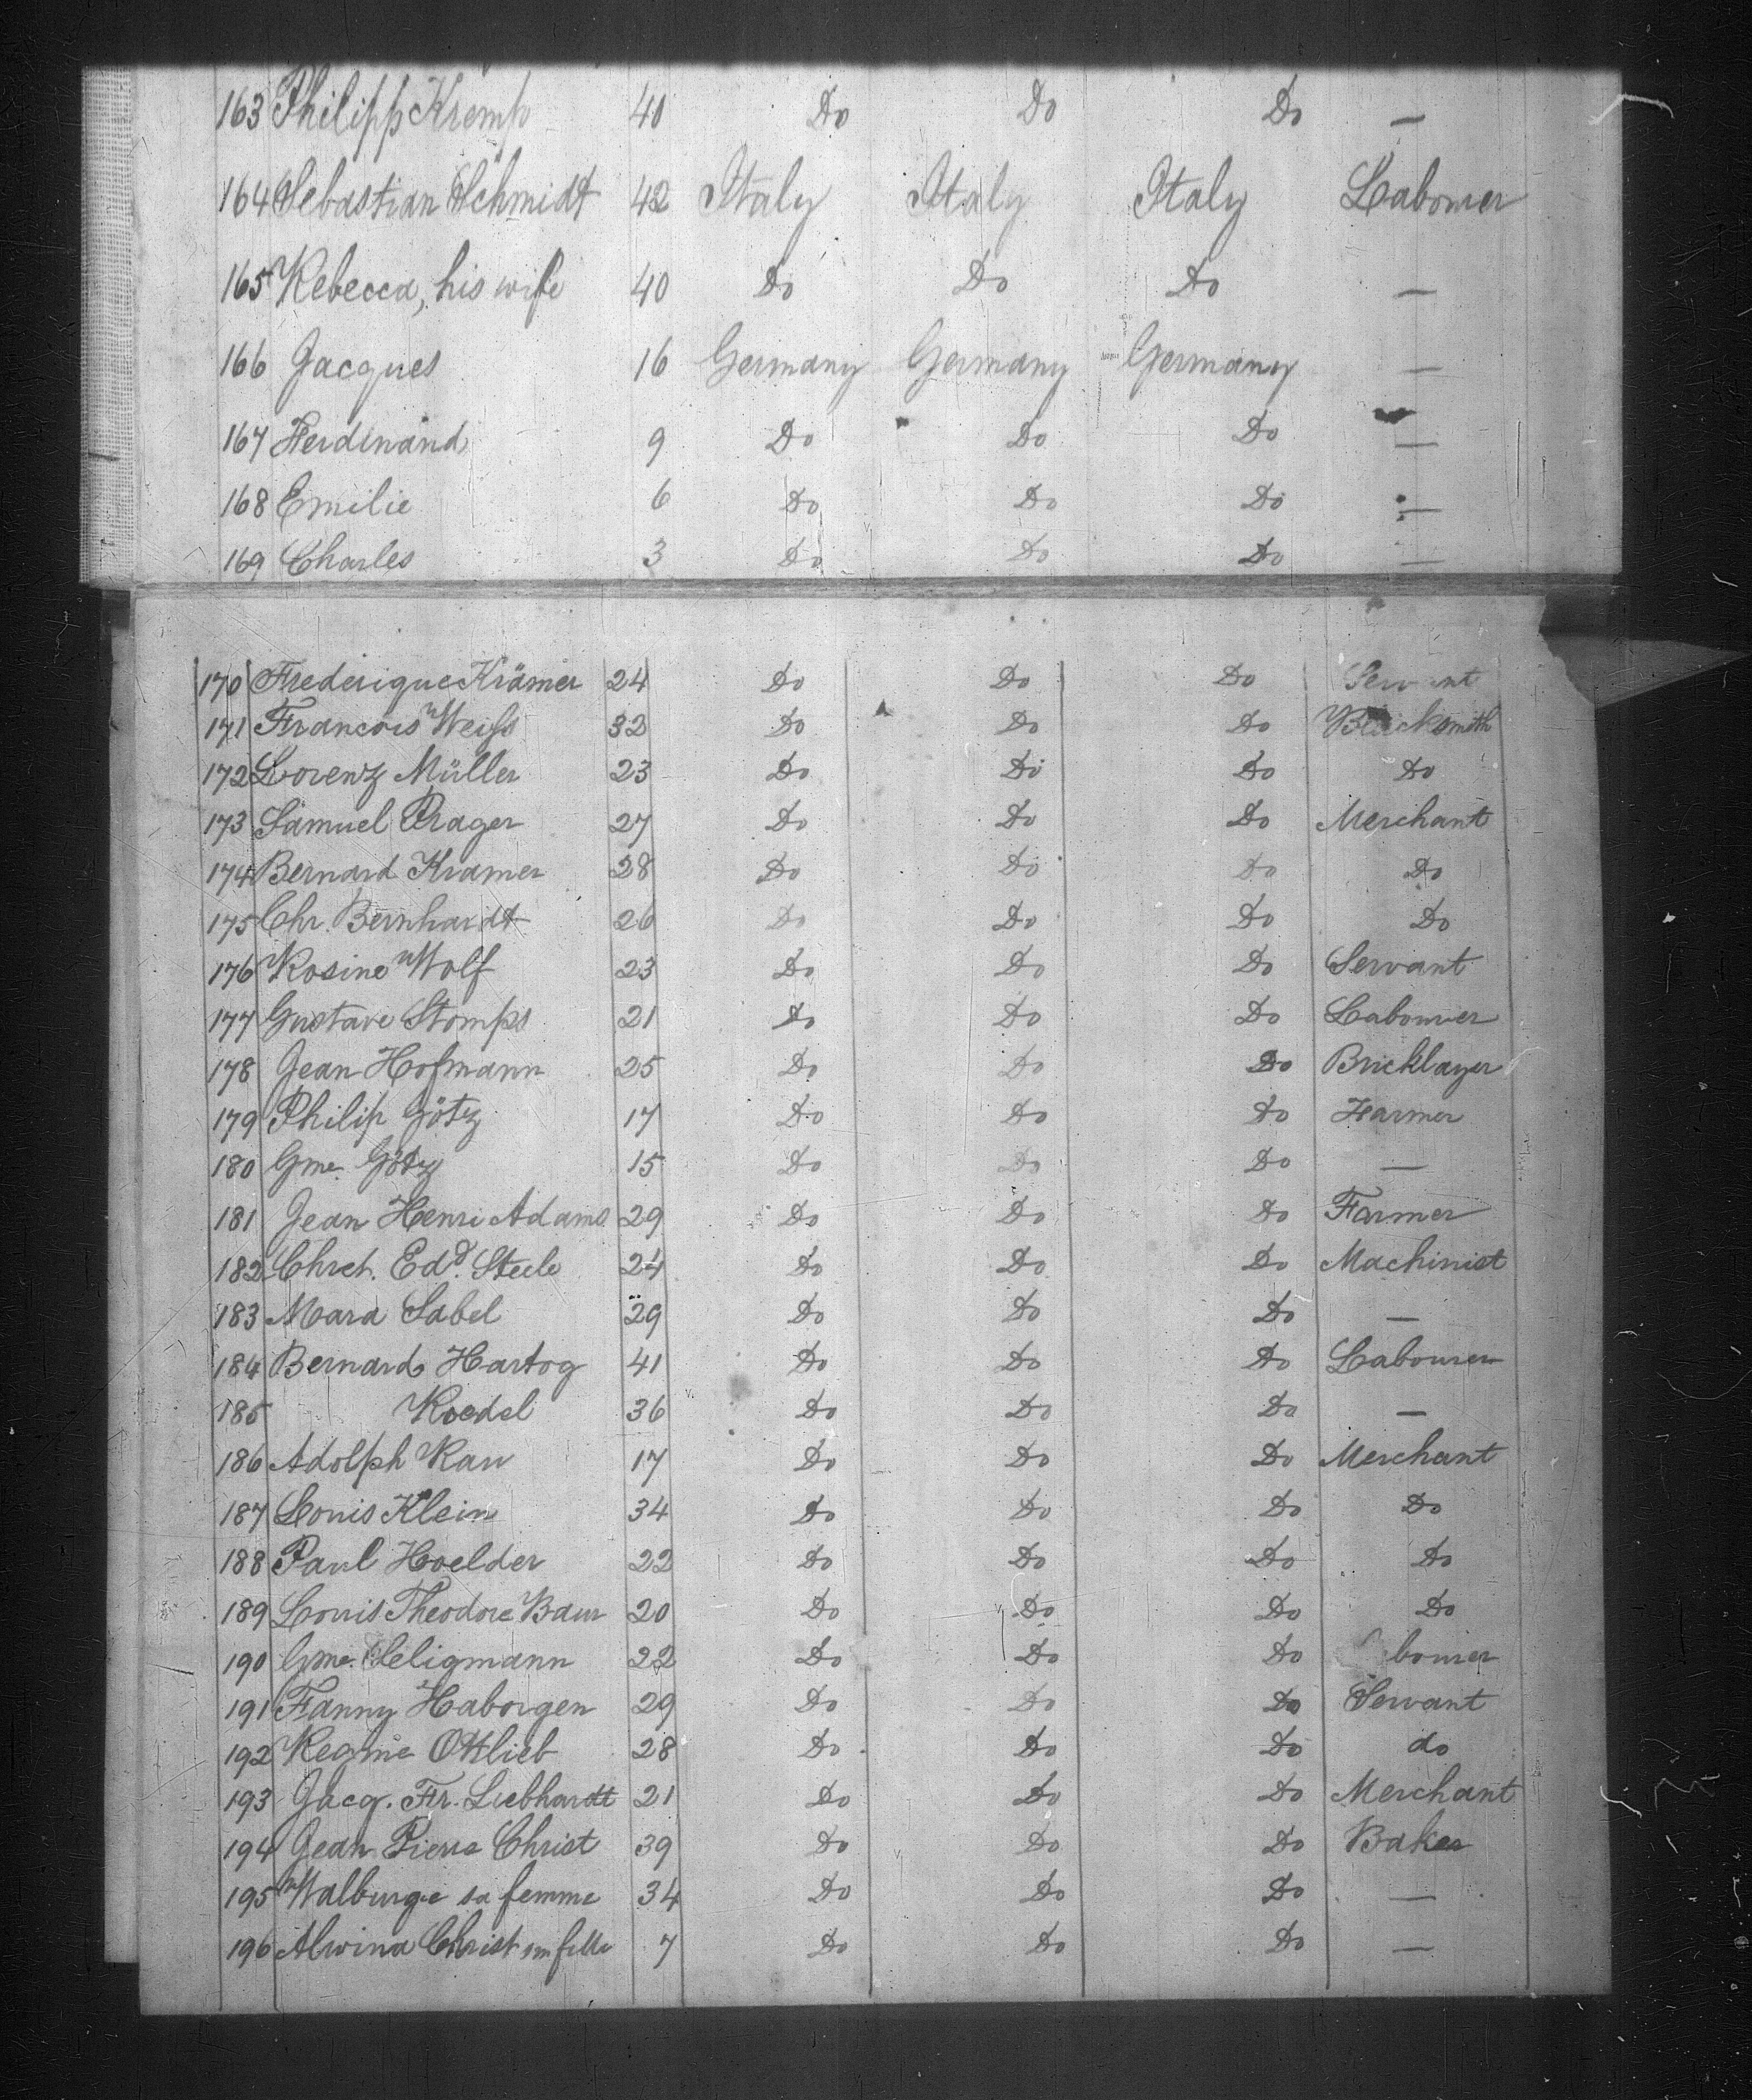 163 Philipp Kremp 40 Do Do Do —
164 Sebastian Schmidt 42 Italy Italy Italy Labourer
165 Rebecca, his wife 40 Do Do Do —
166 Jacques 16 Germany Germany Germany —
167 Ferdinand 9 Do Do Do —
168 Emilie 6 Do Do Do —
169 Charles 3 Do Do Do —
170 Frederique Krämer 24 Do Do Do Servant
171 Francois Weiss 32 Do Do Do Blacksmith
172 Lorenz Müller 23 Do Do Do Do
173 Samuel Prager 27 Do Do Do Merchant
174 Bernard Kramer 28 Do Do Do Do
175 Chr. Bernhardt 26 Do Do Do Do
176 Rosine Wolf 23 Do Do Do Servant
177 Gustave Stomps 21 Do Do Do Labourer
178 Jean Hofmann 25 Do Do Do Bricklayer
179 Philip Götz 17 Do Do Do Farmer
180 Gme. Götz 15 Do Do Do —
181 Jean Henri Adams 29 Do Do Do Farmer
182 Chret. Edd. Steele 24 Do Do Do Machinist
183 Mara Sabel 29 Do Do Do —
184 Bernard Hartog 41 Do Do Do Labourer
185 Roedel 36 Do Do Do —
186 Adolph Rau 17 Do Do Do Merchant
187 Louis Klein 34 Do Do Do Do
188 Paul Hoelder 22 Do Do Do Do
189 Louis Theodore Baur 20 Do Do Do Do
190 Gme. Seligmann 22 Do Do Do bourer
191 Fanny Haborgen 29 Do Do Do Servant
192 Regine Ottlieb 28 Do Do Do do
193 Jacq. Fr. Liebhardt 21 Do Do Do Merchant
194 Jean Pierre Christ 39 Do Do Do Baker
195 Walburge sa femme 34 Do Do Do —
196 Alwina Christ fille 7 Do Do Do —